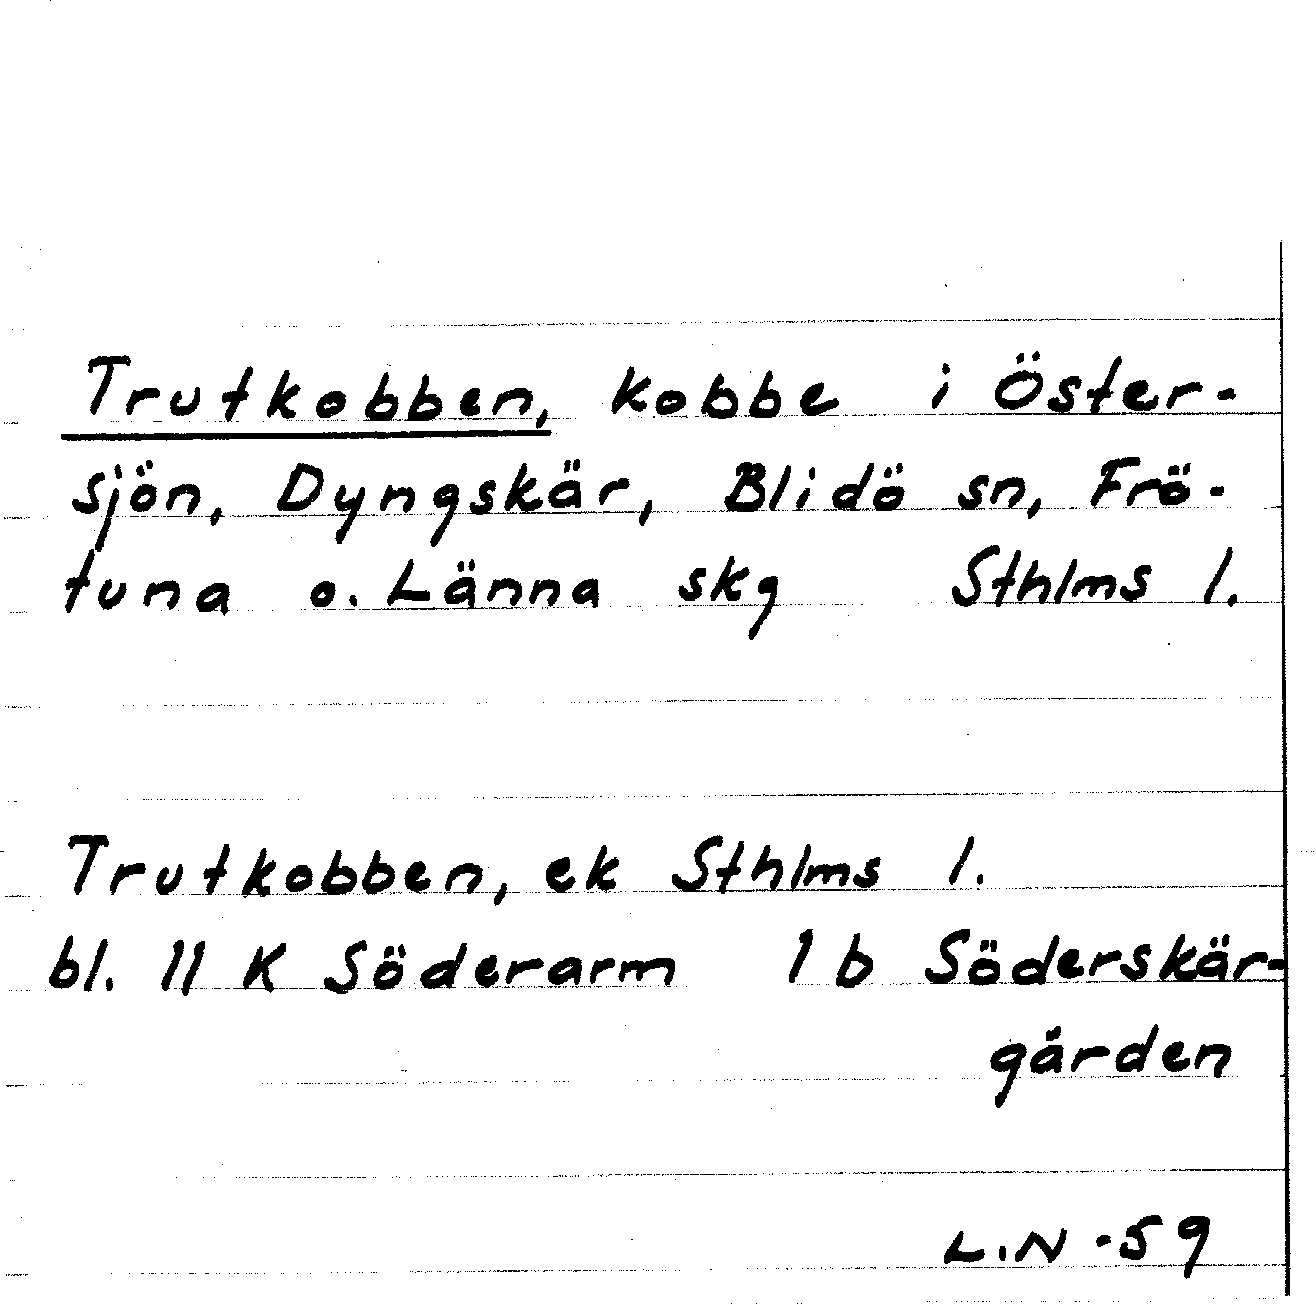 Trutkobben, kobbe i Öster-
sjön, Dyngskär, Blidö sn, Frö-
tuna o. Länna skg Sthlms l.
Trutkobben, ek Sthlms l.
bl. 11 K Söderarm 1 b Söderskär-
gården
L.N -59